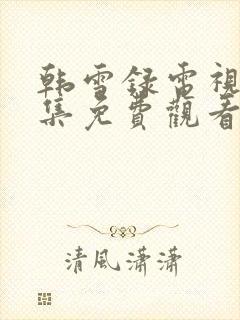 韩雪録電視
集免費觀看
清風瀟瀟